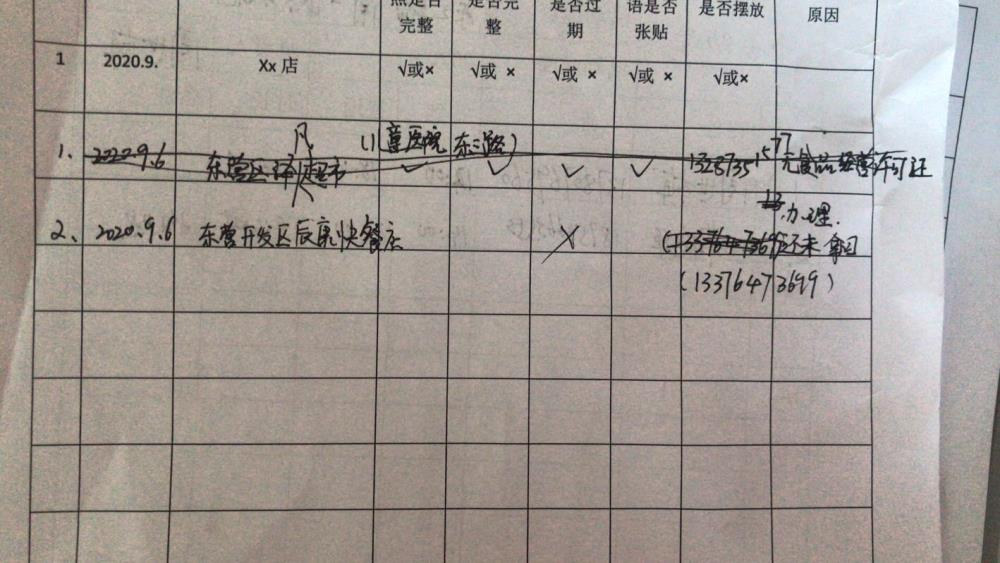 照是否 是否完 是否过 语是否 是否摆放 原因
完整 整 期 张贴
1 2020.9. Xx 店 √或× √或 × √或 × √或 × √或×
(儿童医院 东三路)
1. 2020.9.6 东营区 超市 ✓ ✓ ✓ ✓ 无食品经营许可证
办理.
2、 2020.9.6 东营开发区辰康快餐店 × 还未拿回
(13376473699)